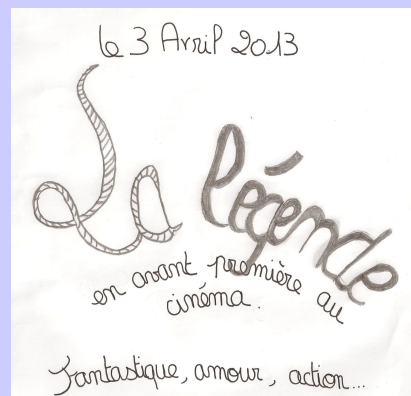 le 3 Avril 2013
La légende
en avant première au
cinéma.
Fantastique, amour, action...